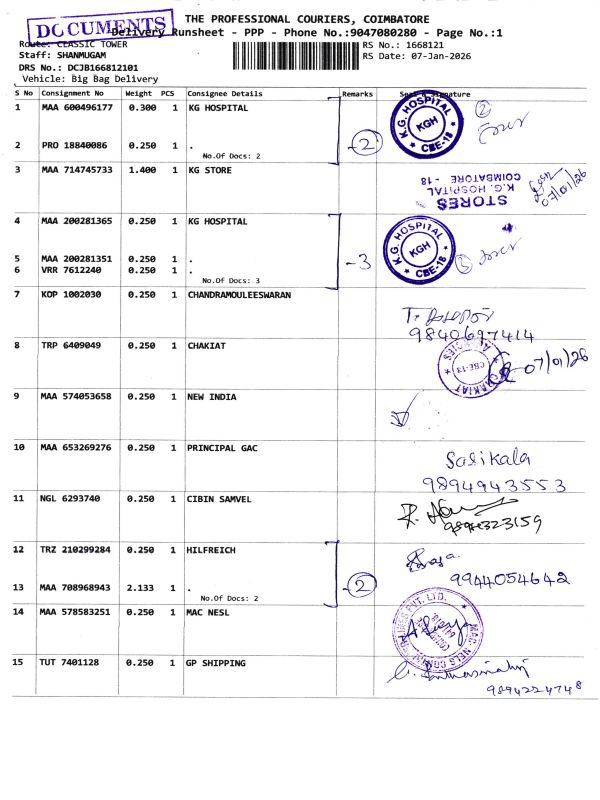 DOCUMENTS
THE PROFESSIONAL COURIERS, COIMBATORE
Delivery Runsheet - PPP - Phone No.:9047080280 - Page No.:1
Route: CLASSIC TOWER
RS No.: 1668121
Staff: SHANMUGAM
RS Date: 07-Jan-2026
DRS No.: DCJB166812101
Vehicle: Big Bag Delivery
S No Consignment No Weight PCS Consignee Details Remarks Seal & Signature
1 MAA 600496177 0.300 1 KG HOSPITAL
K.G. HOSPITAL KGH CBE-18
2
2 PRO 18840086 0.250 1 .
No.Of Docs: 2
-2
3 MAA 714745733 1.400 1 KG STORE
STORES
K.G. HOSPITAL
COIMBATORE - 18
07/01/26
4 MAA 200281365 0.250 1 KG HOSPITAL
K.G. HOSPITAL KGH CBE-18
5 MAA 200281351 0.250 1 .
6 VRR 7612240 0.250 1 .
No.Of Docs: 3
-3
7 KOP 1002030 0.250 1 CHANDRAMOULEESWARAN
9840697414
8 TRP 6409049 0.250 1 CHAKIAT
CHAKIAT AGENCIES CBE-13
07/01/26
9 MAA 574053658 0.250 1 NEW INDIA
10 MAA 653269276 0.250 1 PRINCIPAL GAC
Sasikala
9894943553
11 NGL 6293740 0.250 1 CIBIN SAMVEL
12 TRZ 210299284 0.250 1 HILFREICH
9944054642
13 MAA 708968943 2.133 1 .
No.Of Docs: 2
-2
14 MAA 578583251 0.250 1 MAC NESL
15 TUT 7401128 0.250 1 GP SHIPPING
9894224748